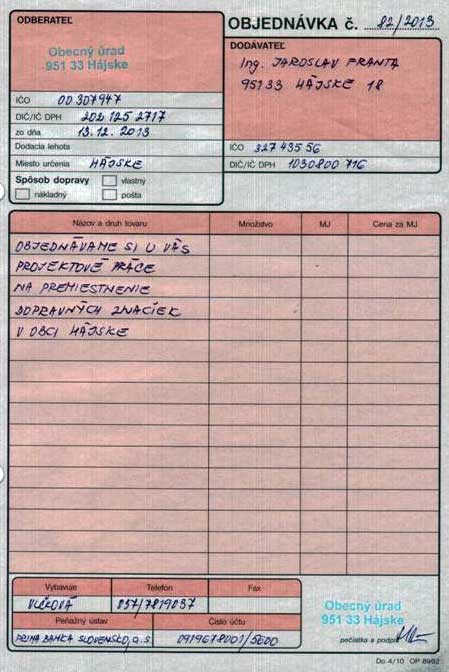 ODBERATEĽ
Obecný úrad
951 33 Hájske
IČO 00 307947
DIČ/IČ DPH 202 125 2717
zo dňa 13.12.2013
Dodacia lehota
Miesto určenia HÁJSKE
Spôsob dopravy vlastný
nákladný pošta
OBJEDNÁVKA č. 82/2013
DODÁVATEĽ
Ing. JAROSLAV FRANTA
951 33 HÁJSKE 18
IČO 327 435 56
DIČ/IČ DPH 1030800716
Názov a druh tovaru Množstvo MJ Cena za MJ
OBJEDNÁVAME SI U VÁS
PROJEKTOVÉ PRÁCE
NA PREMIESTNENIE
DOPRAVNÝCH ZNAČIEK
V OBCI HÁJSKE
Vybavuje Telefón Fax
VLČKOVÁ 037/7819037
Peňažný ústav Číslo účtu
PRIMA BANKA SLOVENSKO, a.s. 0919678001/5600
Obecný úrad
951 33 Hájske
pečiatka a podpis
Do 4/10 OP 8992